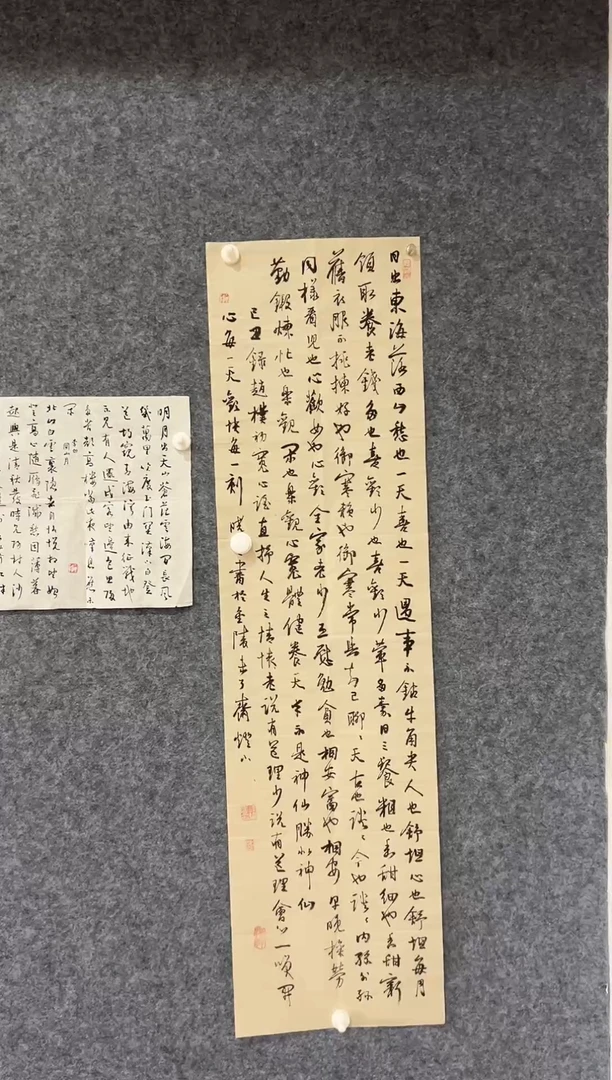 日出東海落西山愁也一天喜也一天遇事不鑽牛角尖人也舒坦心也舒坦每月
領取養老錢多也喜歡少也喜歡少葷多素日三餐粗也香甜細也香甜新
舊衣服不挑揀好也御寒赖也御寒常與知己聊聊天古也談談今也談談内孫外孫
同樣看兒也心歡女也心歡全家老少互慰勉貧也相安富也相安早晚操勞
勤鍛煉忙也樂觀閑也樂觀心寬體健養天年不是神仙勝似神仙
己丑錄趙樸初寬心謡直抒人生之情懷老説有道理少説有道理會心一
心每一天歡快每一刻
書於金陵
齋燈下
明月出天山蒼茫雲海間長風
幾萬里吹度玉門關漢下白登
道胡窺青海灣由來征戰地
不見有人還戍客望邊色思歸
多苦顏高樓當此夜嘆息應未
閑
李白
關山月
北山白雲裏隱者自怡悦相望始
登高心隨雁飛滅愁因薄暮
起興是清秋發時見歸村人沙